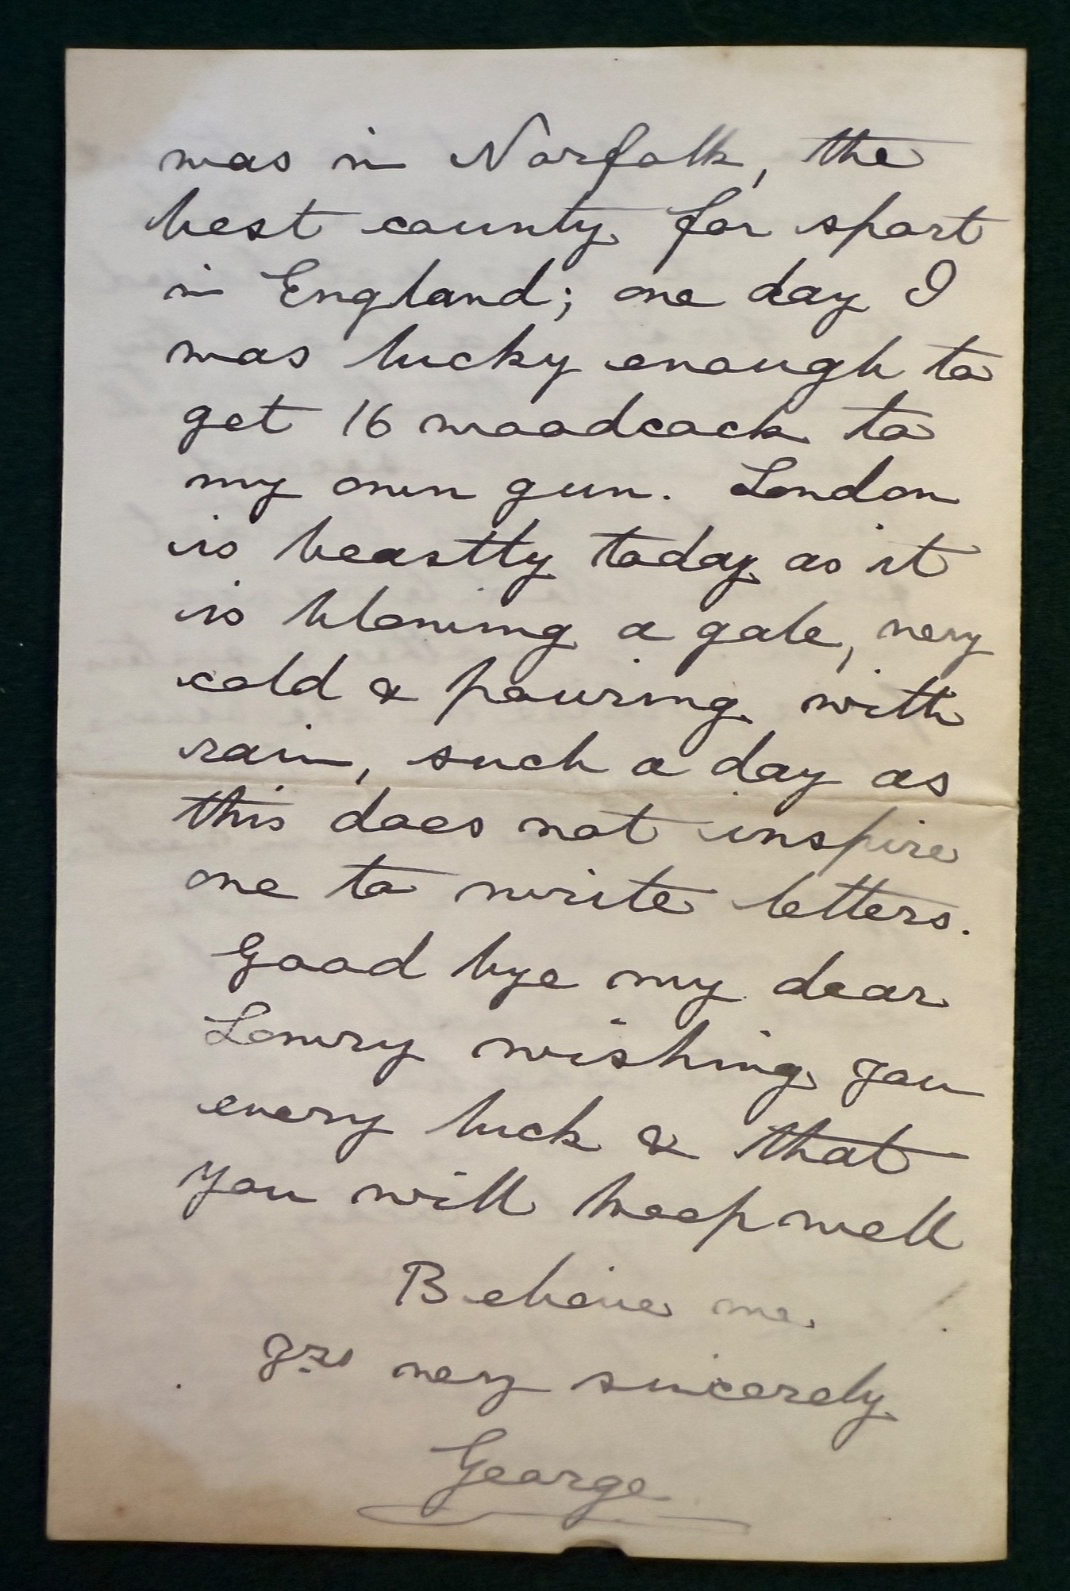 was in Norfolk, the
best county for sport
in England; one day I
was lucky enough to
get 16 woodcock to
my own gun. London
is beastly today as it
is blowing a gale, very
cold & pouring with
rain, such a day as
this does not inspire
one to write letters.
Good bye my dear
Lowry wishing you
every luck & that
you will keep well
Believe me
yrs very sincerely
George